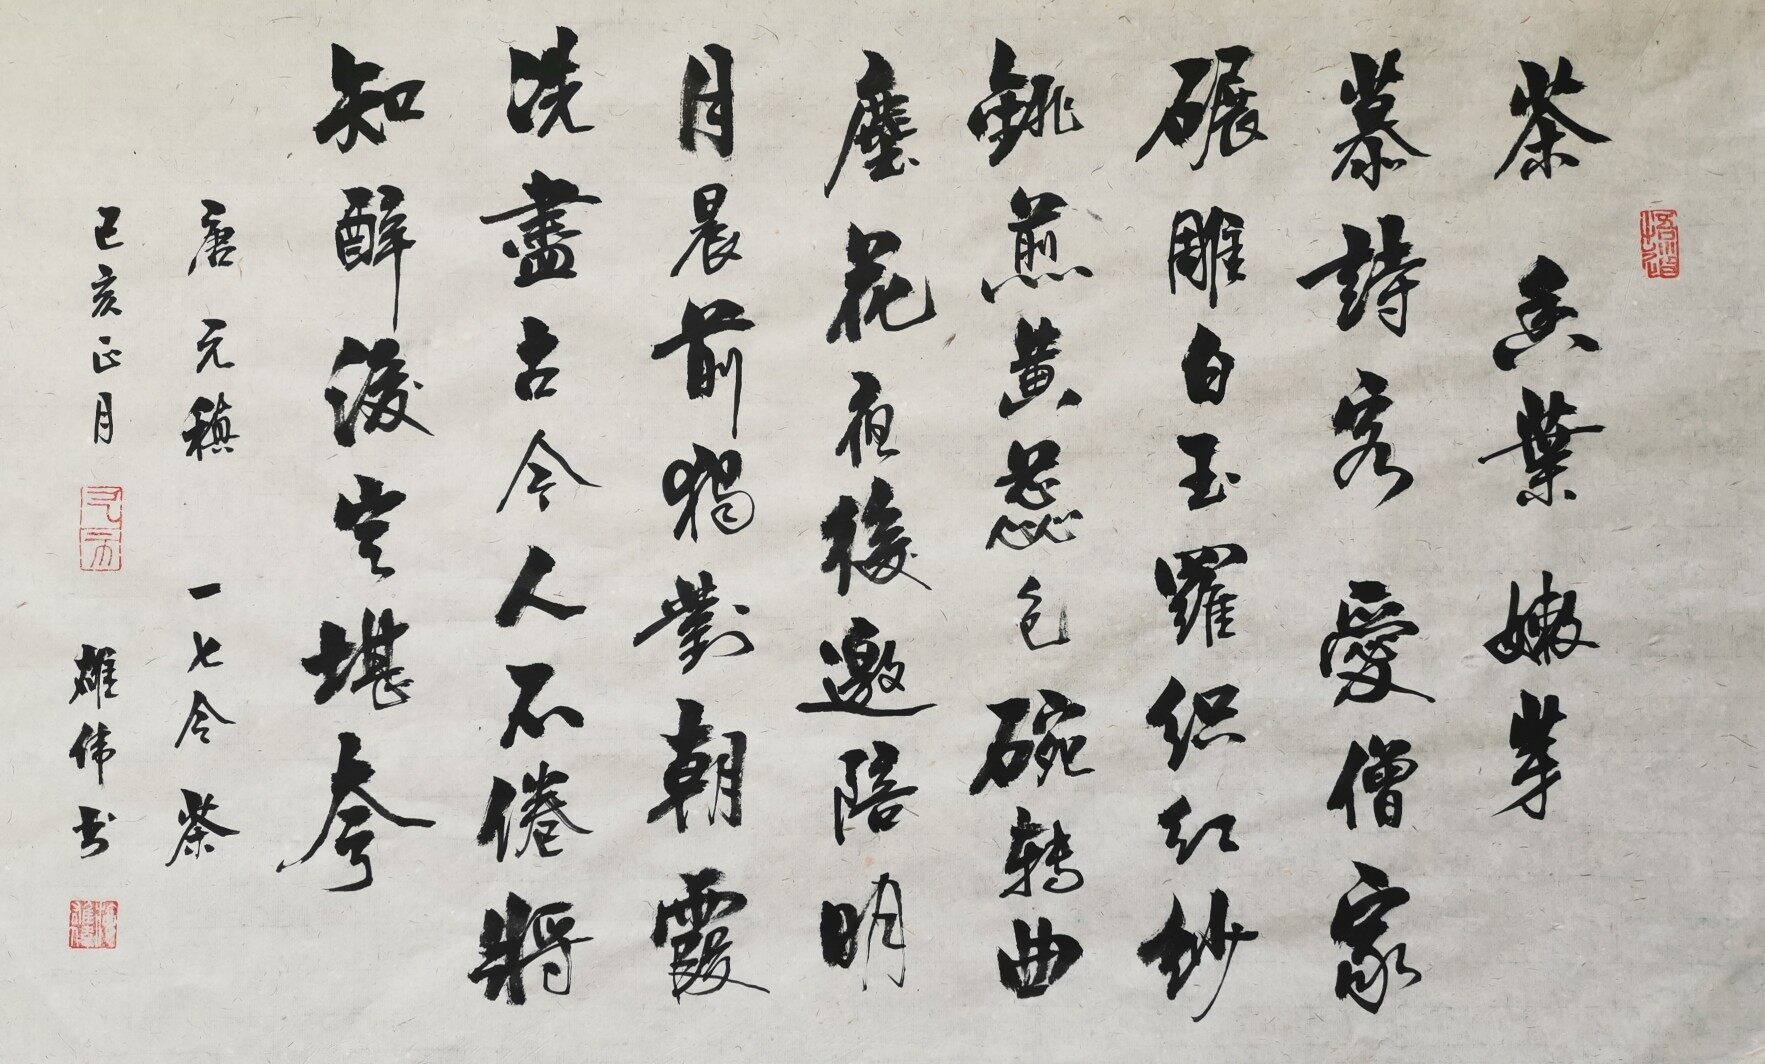 茶香葉嫩芽
慕詩客愛僧家
碾雕白玉羅织红纱
銚煎黄蕊色碗转曲
塵花夜後邀陪明
月晨前獨對朝霞
洗盡古今人不倦將
知醉後豈堪夸
唐元稹 一七令 茶
己亥正月 雄伟书